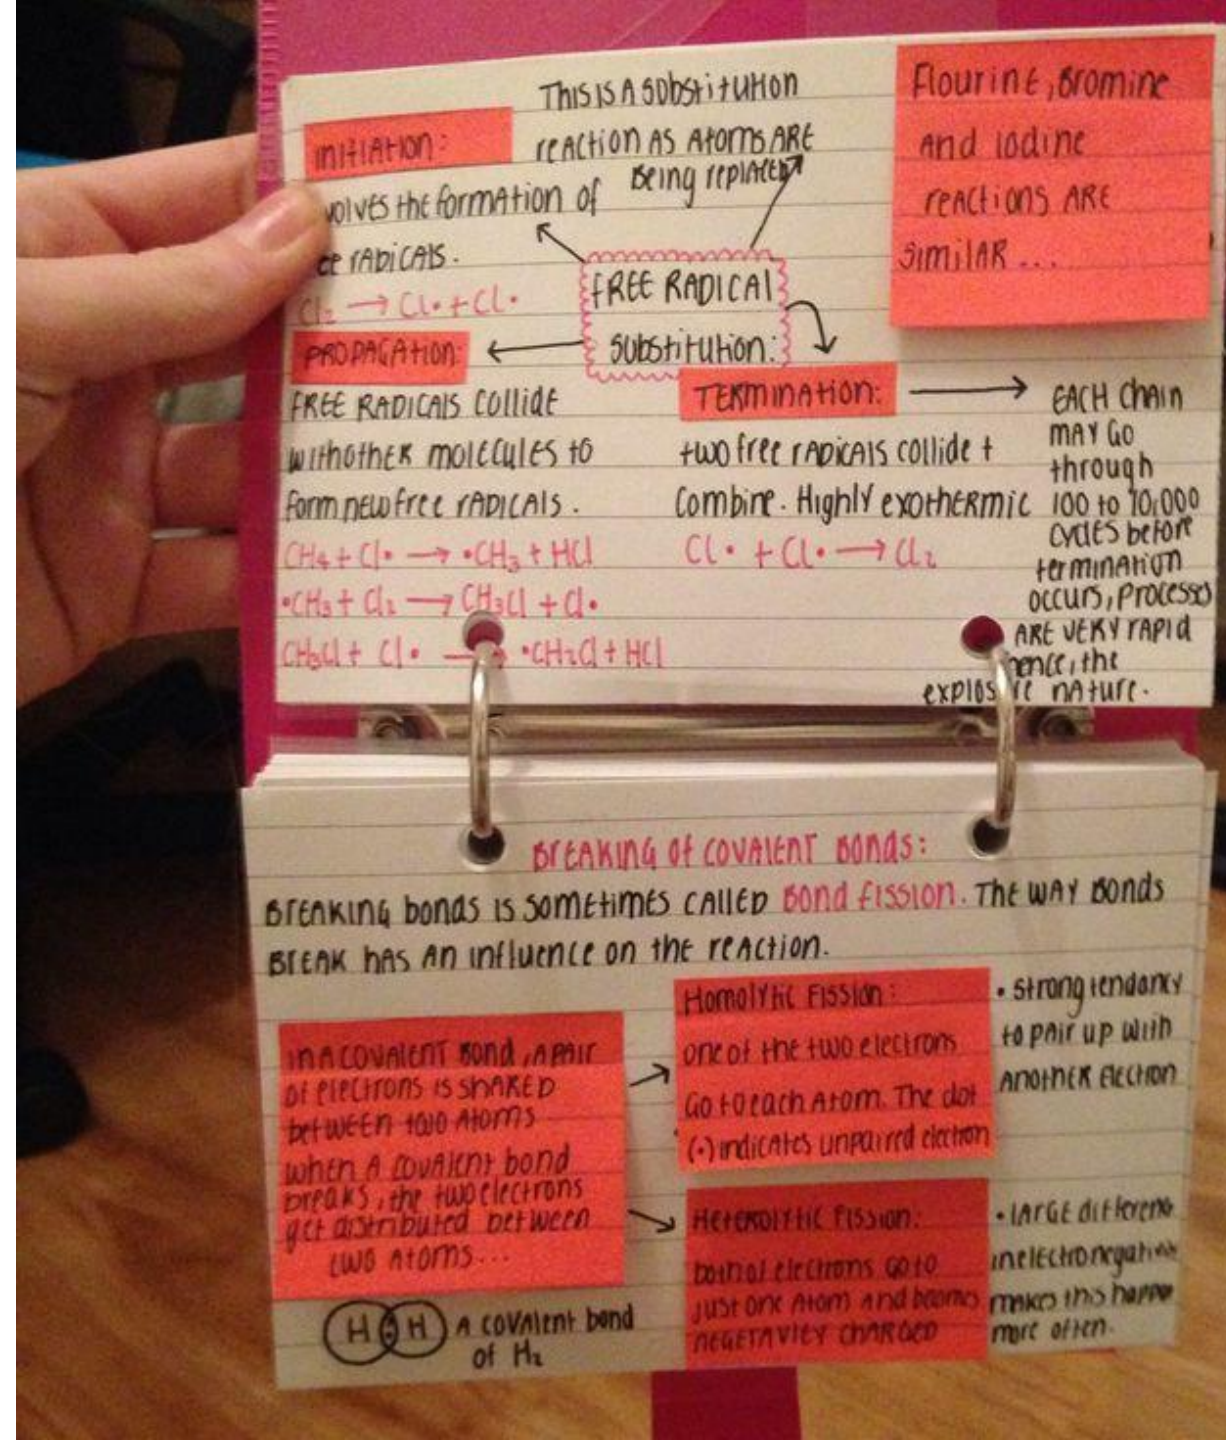 THIS IS A SUBSTITUTION
REACTION AS ATOMS ARE
BEING REPLACED
INITIATION:
VOLVES THE FORMATION OF
EE RADICALS.
Cl₂ → Cl• + Cl•
FREE RADICAL
SUBSTITUTION:
Flourine, Bromine
AND Iodine
REACTIONS ARE
SIMILAR ...
PROPAGATION:
FREE RADICALS COLLIDE
WITH OTHER MOLECULES TO
FORM NEW FREE RADICALS.
CH₄ + Cl• → •CH₃ + HCl
•CH₃ + Cl₂ → CH₃Cl + Cl•
CH₃Cl + Cl• → •CH₂Cl + HCl
TERMINATION:
two free RADICALS collide +
Combine. Highly exothermic
Cl• + Cl• → Cl₂
→ EACH Chain
MAY GO
through
100 to 10,000
cycles before
termination
occurs, Processes
ARE VERY RAPID
hence, the
explosive nature.
BREAKING OF COVALENT BONDS:
BREAKING bonds IS SOMETIMES CALLED Bond fission. THE WAY BONDS
BREAK HAS AN influence on the reaction.
IN A COVALENT BOND, A PAIR
OF ELECTRONS IS SHARED
BETWEEN TWO ATOMS
WHEN A COVALENT bond
breaks, the two electrons
get distributed between
two atoms...
Homolytic Fission:
one of the two electrons
Go to each Atom. The dot
(•) indicates unpaired electron
• strong tendancy
to pair up with
ANOTHER Electron
HETEROLYTIC FISSION:
both of electrons go to
just one Atom and becomes
NEGETAVIEY CHARGED
• LARGE differenc
in electronegativi
makes this happe
more often.
H : H
A covalent bond
of H₂